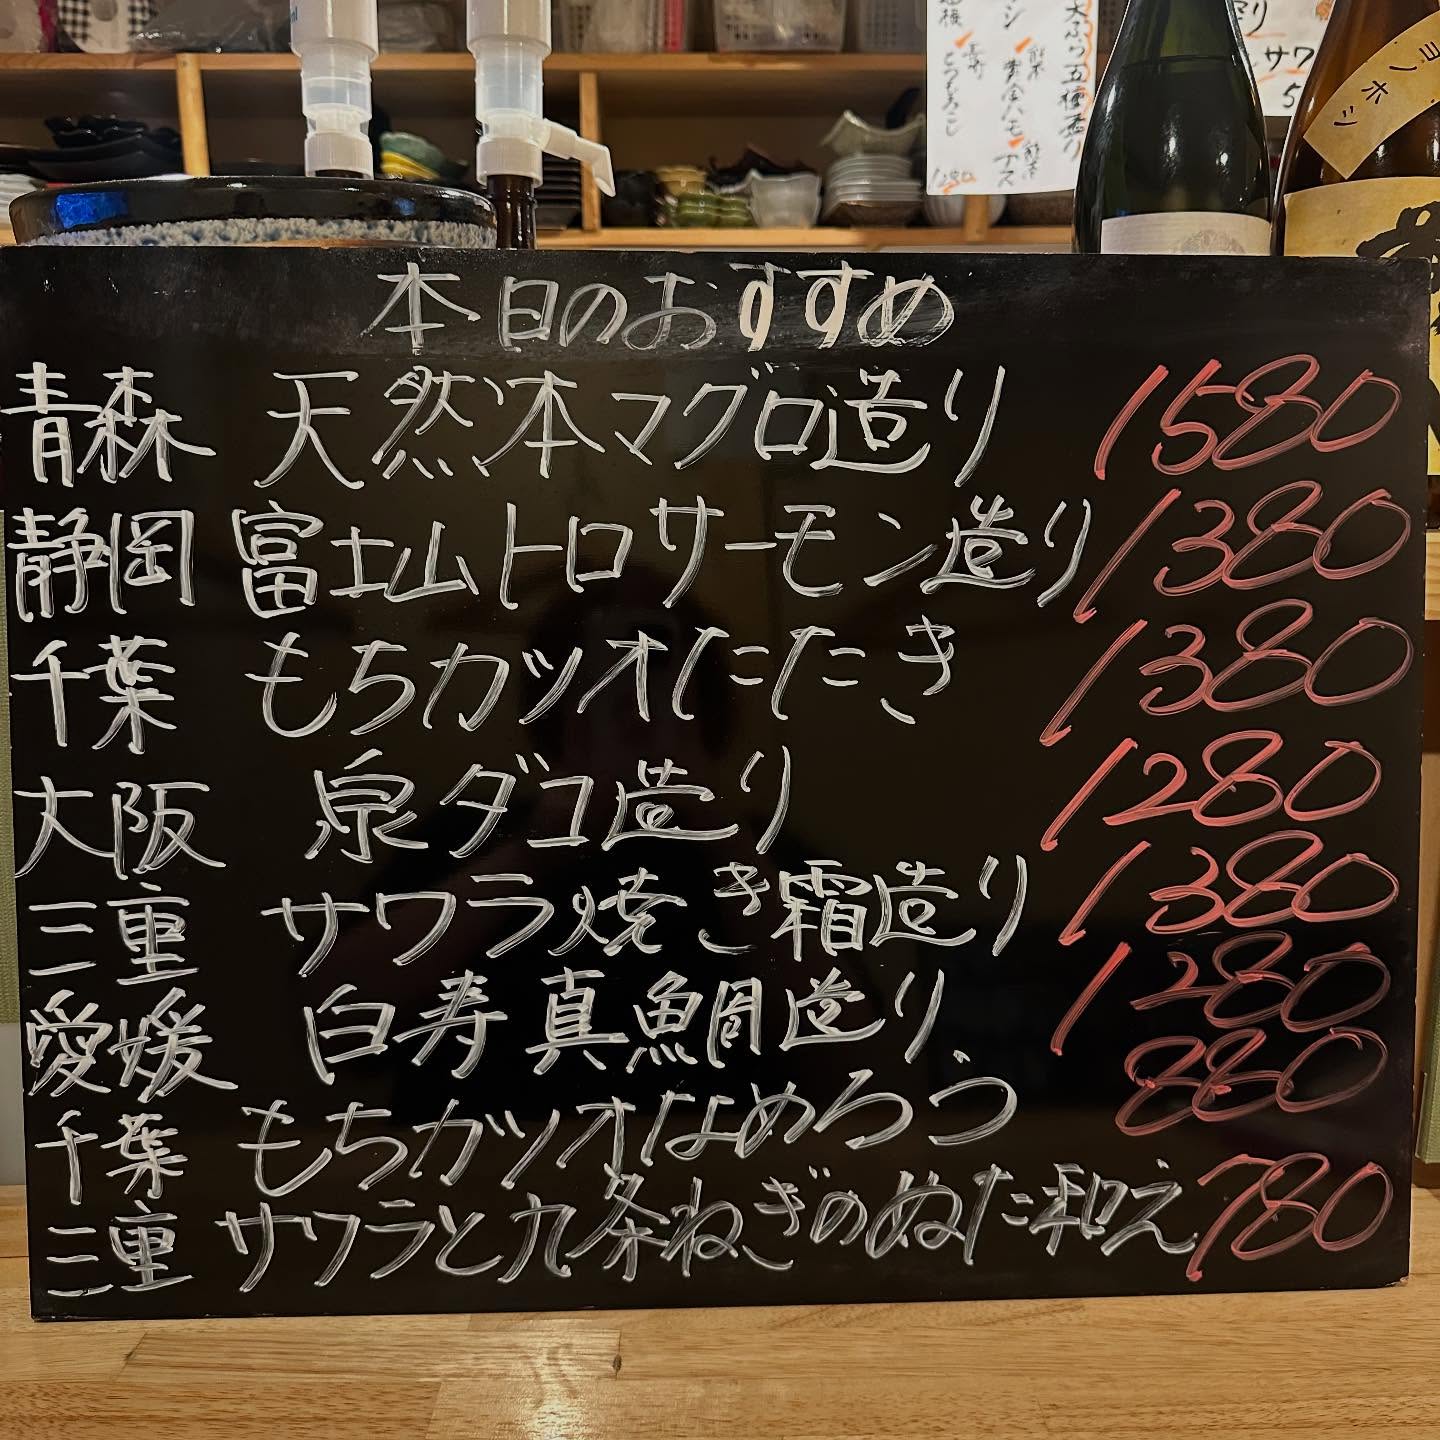 本日のおすすめ
青森 天然本マグロ造り 1580
静岡 富士山トロサーモン造り 1380
千葉 もちカツオたたき 1380
大阪 泉ダコ造り 1280
三重 サワラ焼き霜造り 1380
愛媛 白寿真鯛造り 1280
千葉 もちカツオなめろう 880
三重 サワラと九条ねぎのぬた和え 780
サワ
ヨノホシ